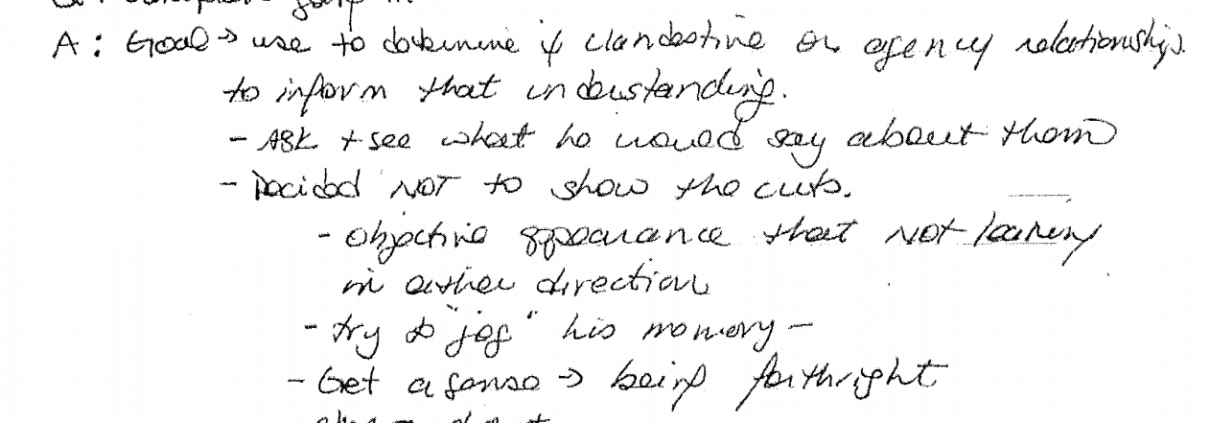 A: Goal → use to determine if clandestine or agency relationships.
to inform that understanding.
- ASK + see what he would say about them
- Decided NOT to show the cuts.
- objective appearance that NOT leaning
in either direction
- try to "jog" his memory -
- Get a sense → being forthright